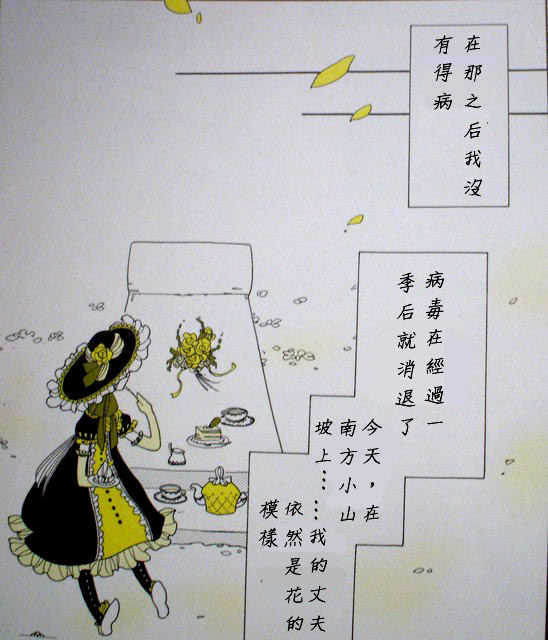 在那之后我沒
有得病
病毒在經過一
季后就消退了
今天，在
南方小山
坡上……
…我的丈夫
依然是花的
模樣